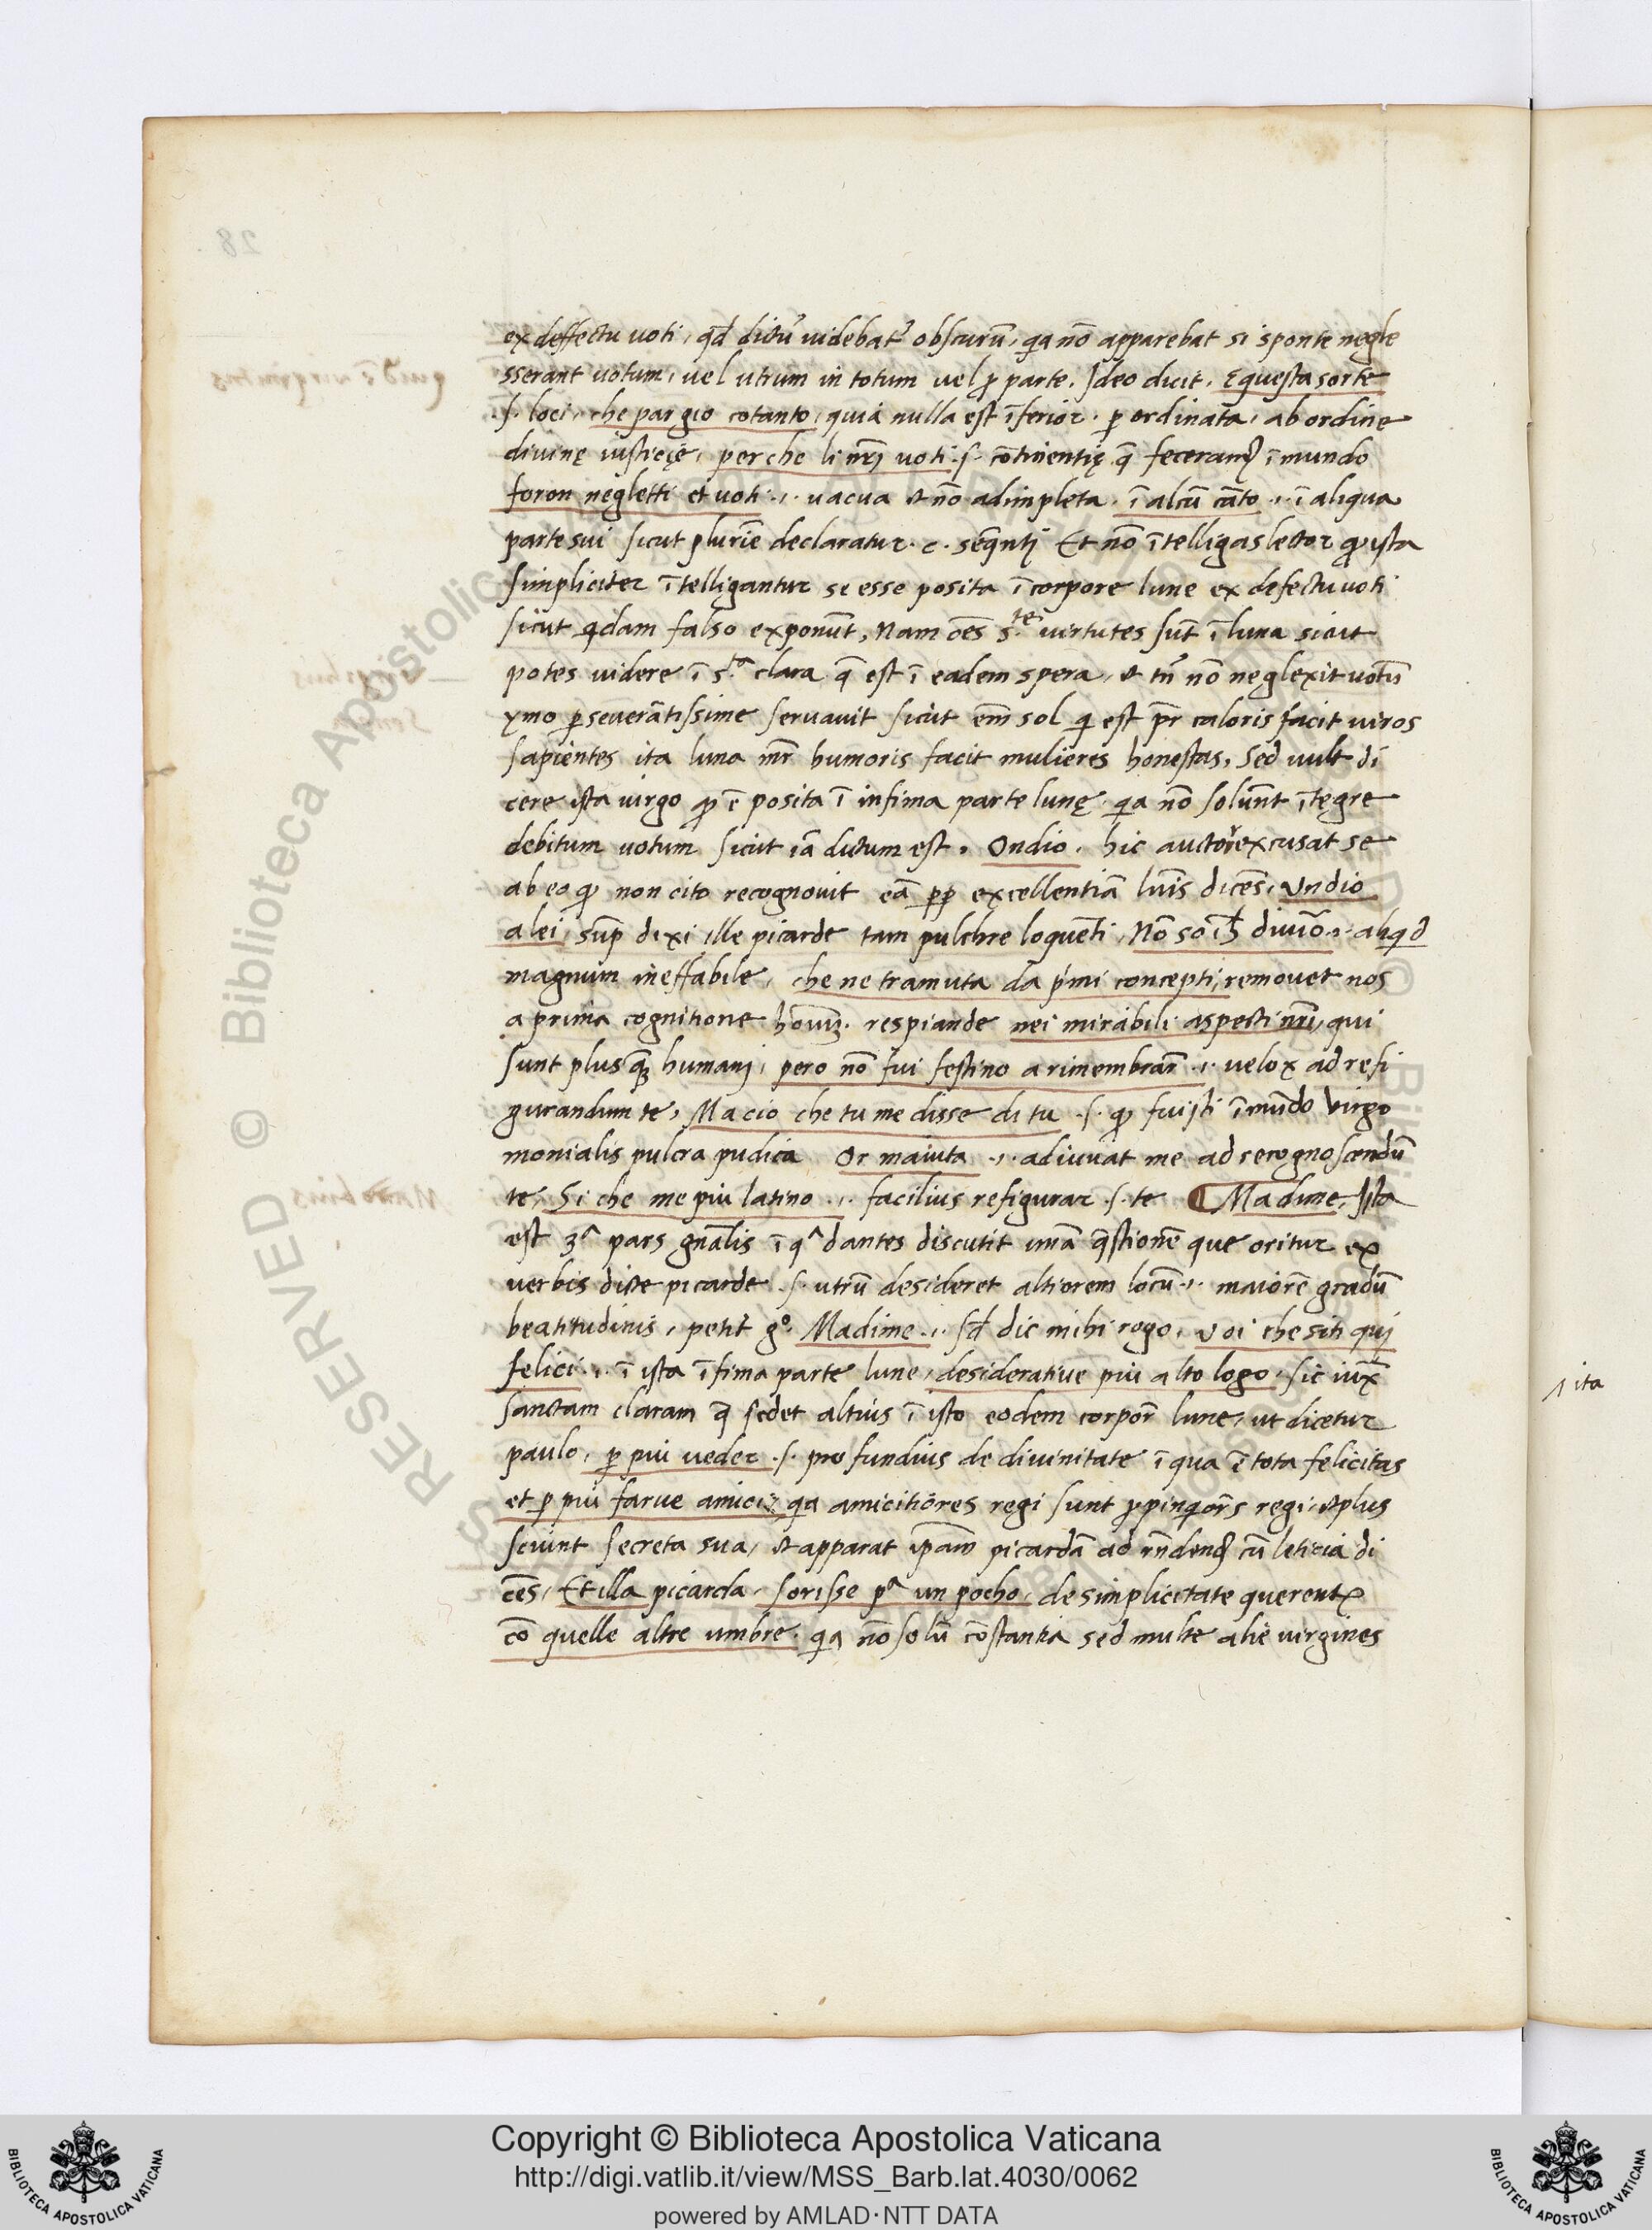 ex deffectu voti, qd̄ dictū videbat᷑ obscurū, qia nō apparebat si sponte negle
sserant votum, vel utrum in totum vel ꝓ parte. Ideo dicit. Equesta sorte
.s. loci, che par gio cotanto, quia nulla est īferior. ꝑ ordinatā, ab ordine
divinę iusticię, perche li nr̄j voti .s. cōtinentię q̄ fecerant ī mundo
foron negletti et voti .i. vacua et nō adimpleta. ī alcū cāto .i. ī aliqua
parte sui sicut plurīe declaratur. c. seq̄ntj Et nō ītelligas lector ꝙ ista
simpliciter ītelligantur se esse posita ī corpore lune ex defectu voti
sicut qdam falso exponūt, Nam oēs s.te virtutes sūt ī luna sicut
potes videre ī s.ta clara q̄ est ī eadem spera, et tn̄ nō neglexit votū
ymo ꝑseverātissime servavit sicut em̄ sol qi est pr̄ caloris facit viros
sapientes ita luna mr̄ humoris facit mulieres honestas, Sed vult di
cere ista virgo ꝙ ē posita ī infima parte lunę. qia nō solvūnt ītęgre
debitum votum sicut iā dictum est. Ondio. hic auctor excusat se
ab eo ꝙ non cito recognovit eā pp̄ excellentiā lūis dicēs, Undio
a lei, sup̄ dixi ille picarde tam pulchre loquēti, Nō so divīo .i. aliqd
magnum ineffabile, che ne tramuta da p̓mi concepti, removet nos
a prima cognitione hōuꝫ. respiande nei mirabili aspecti nr̄i, qui
sunt plusq̄ꝫ humanj, pero nō fui festino a rimembrar̄ .i. velox ad refi
gurandum te, Ma cio che tu me disse di tu .s. ꝙ fuisti ī mūdo virgo
monialis pulcra pudica Or maiuta .i. adiuvat me ad recognoscendū
te, Si che me piu latino .i. facilius refigurar .s. te ¶ Madime, Ista
est 3ᵃ pars gn̄alis ī qᵃ dantes discutit unā q̄stionē que oritur ex
verbis dicte picarde .s. utrū desideret altiorem locū .i. maiorē gradū
beatitudinis, petit gᵒ. Madime .i. sd̄ dic mihi rogo, voi che siti quj
felici .i. ī ista īfima parte lune, desiderative piu alto logo, sic iux̄
sanctam claram q̄ sedet altius ī isto eodem corpor̄ lune, ut dicetur
paulo, ꝑ piu veder .s. profundius de divinitate ī qua ē tota felicitas
et ꝑ piu farve amici, qia amicitiōres regi sunt ꝓpinqior̄s regi, et plus
sciunt secreta sua, et apparat ip̄am picardā ad rn̄dend cū leticia di
cēs, Et illa picarda, sorisse pᵃ un pocho, de simplicitate querent᷑
cō quelle altre umbre. qia nō solū cōstantia sed multe alie virgines
ita
28
Copyright © Biblioteca Apostolica Vaticana
http://digi.vatlib.it/view/MSS_Barb.lat.4030/0062
powered by AMLAD·NTT DATA
BIBLIOTECA APOSTOLICA VATICANA
BIBLIOTECA APOSTOLICA VATICANA